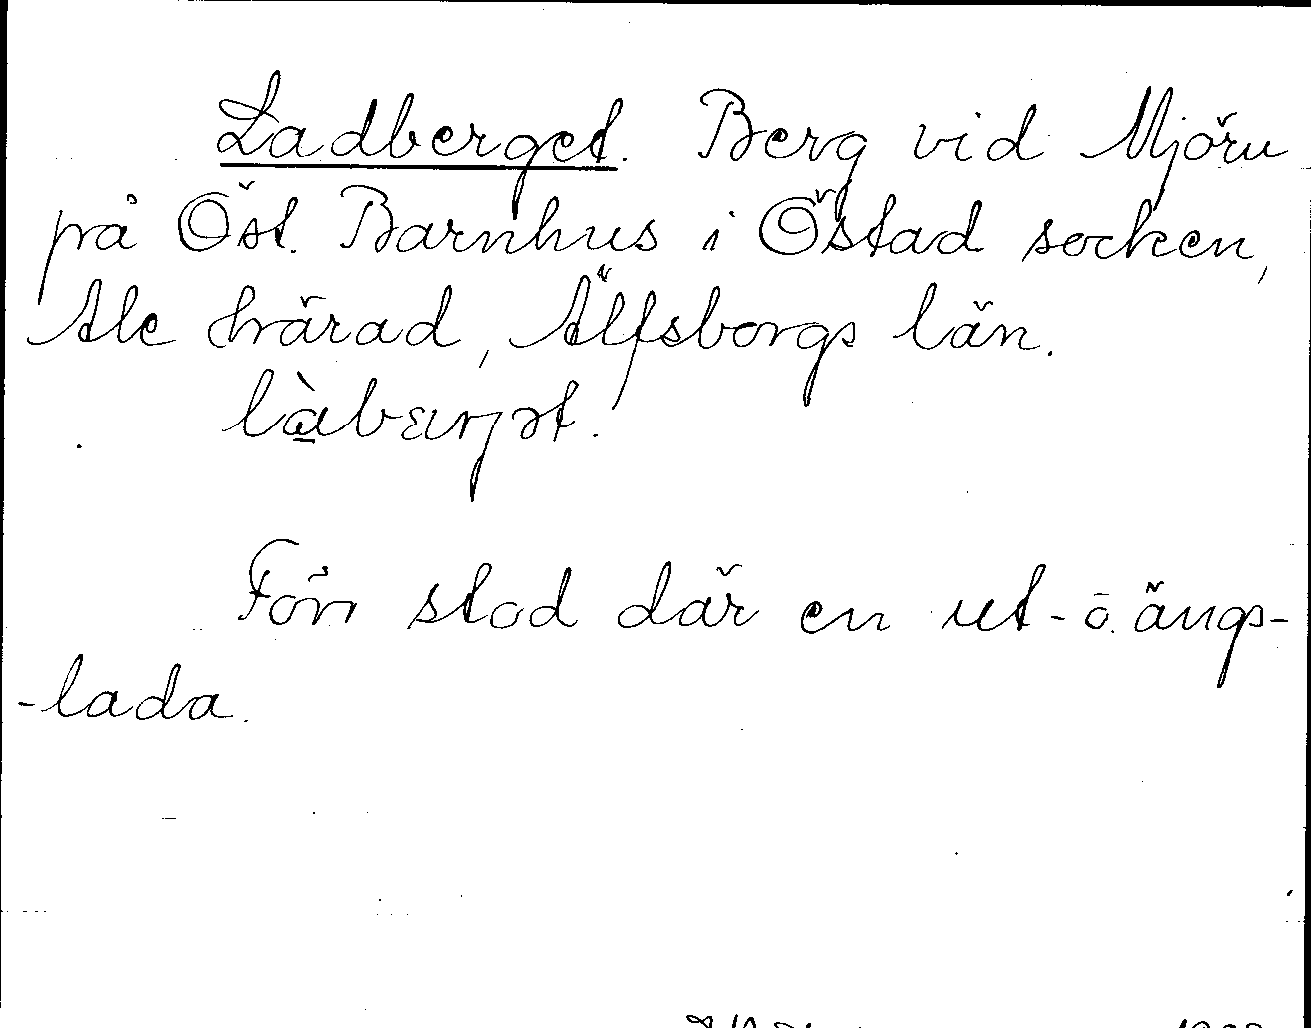 Ladberget. Berg vid Mjörn
på Öst. Barnhus i Östad socken,
Ale härad, Älfsborgs län.
làbærjət.
Förr stod där en ut- o. ängs-
-lada.